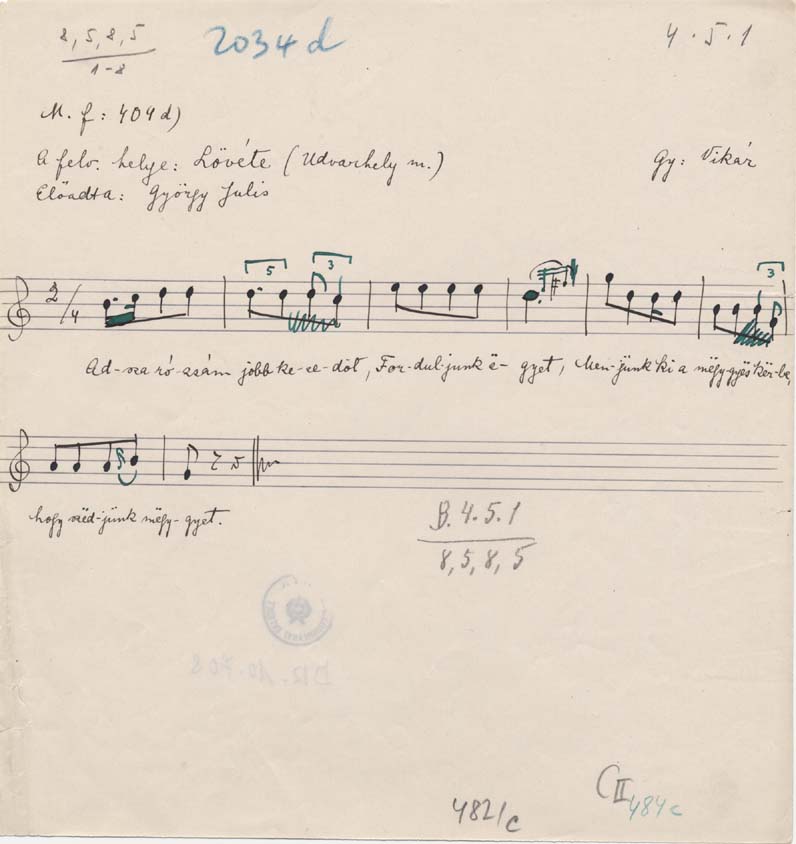 8, 5, 8, 5
1-8
2034 d
4 · 5 · 1
M. f: 404 d)
A felv. helye: Lövéte (Udvarhely m.)
Gy: Vikár
Előadta: György Julis
5 3 3
2/4
Ad-sza ró-zsám jobb ke-ze-döt, For-dul-junk ë-gyet, Men-jünk ki a mëgy-gyës kër-be,
hogy szëd-jünk mëgy-gyet.
B. 4. 5. 1
8, 5, 8, 5
4821/c
C II 484 c